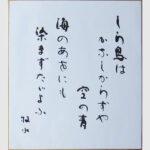 しら鳥は
かなしからずや
空の青
海のあをにも
染まずたゞよふ
牧水